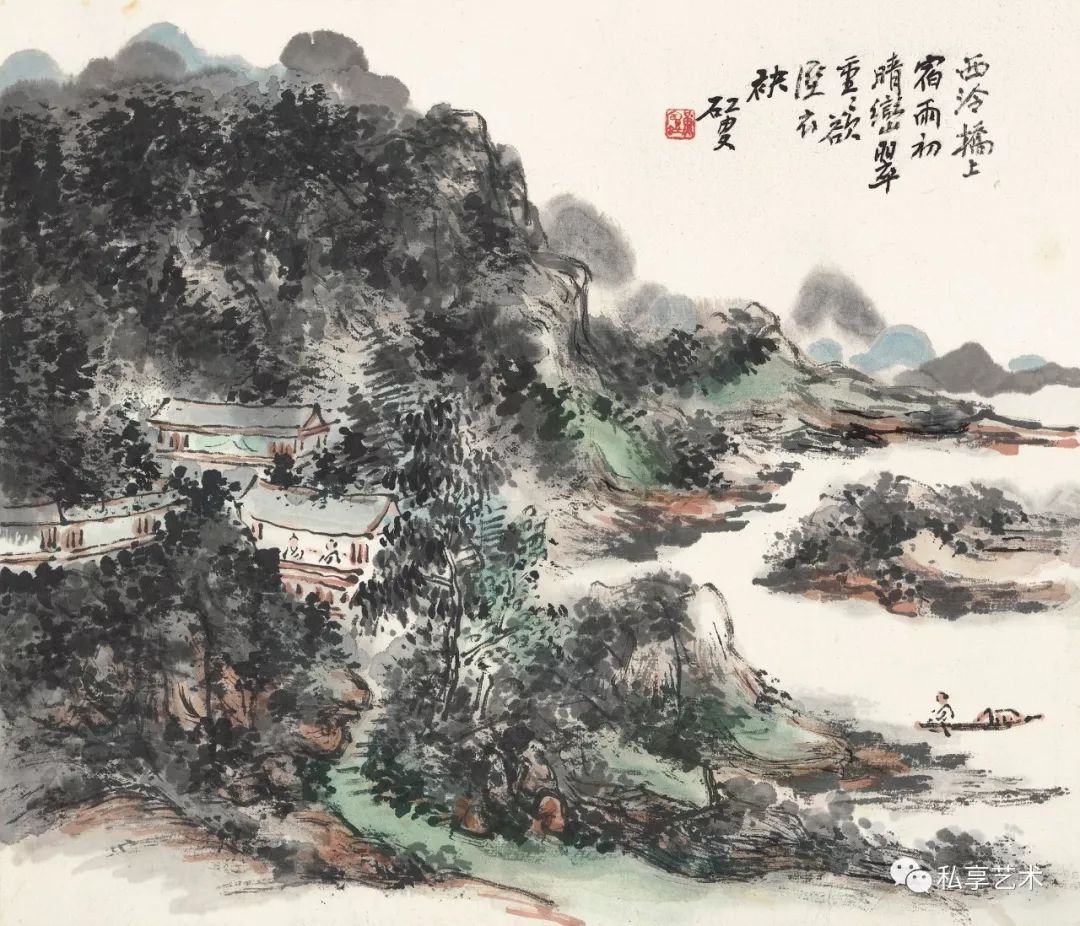 西泠橋上
宿雨初
晴巒翠
重〻欲
溼衣
袂
矼叟
私享艺术